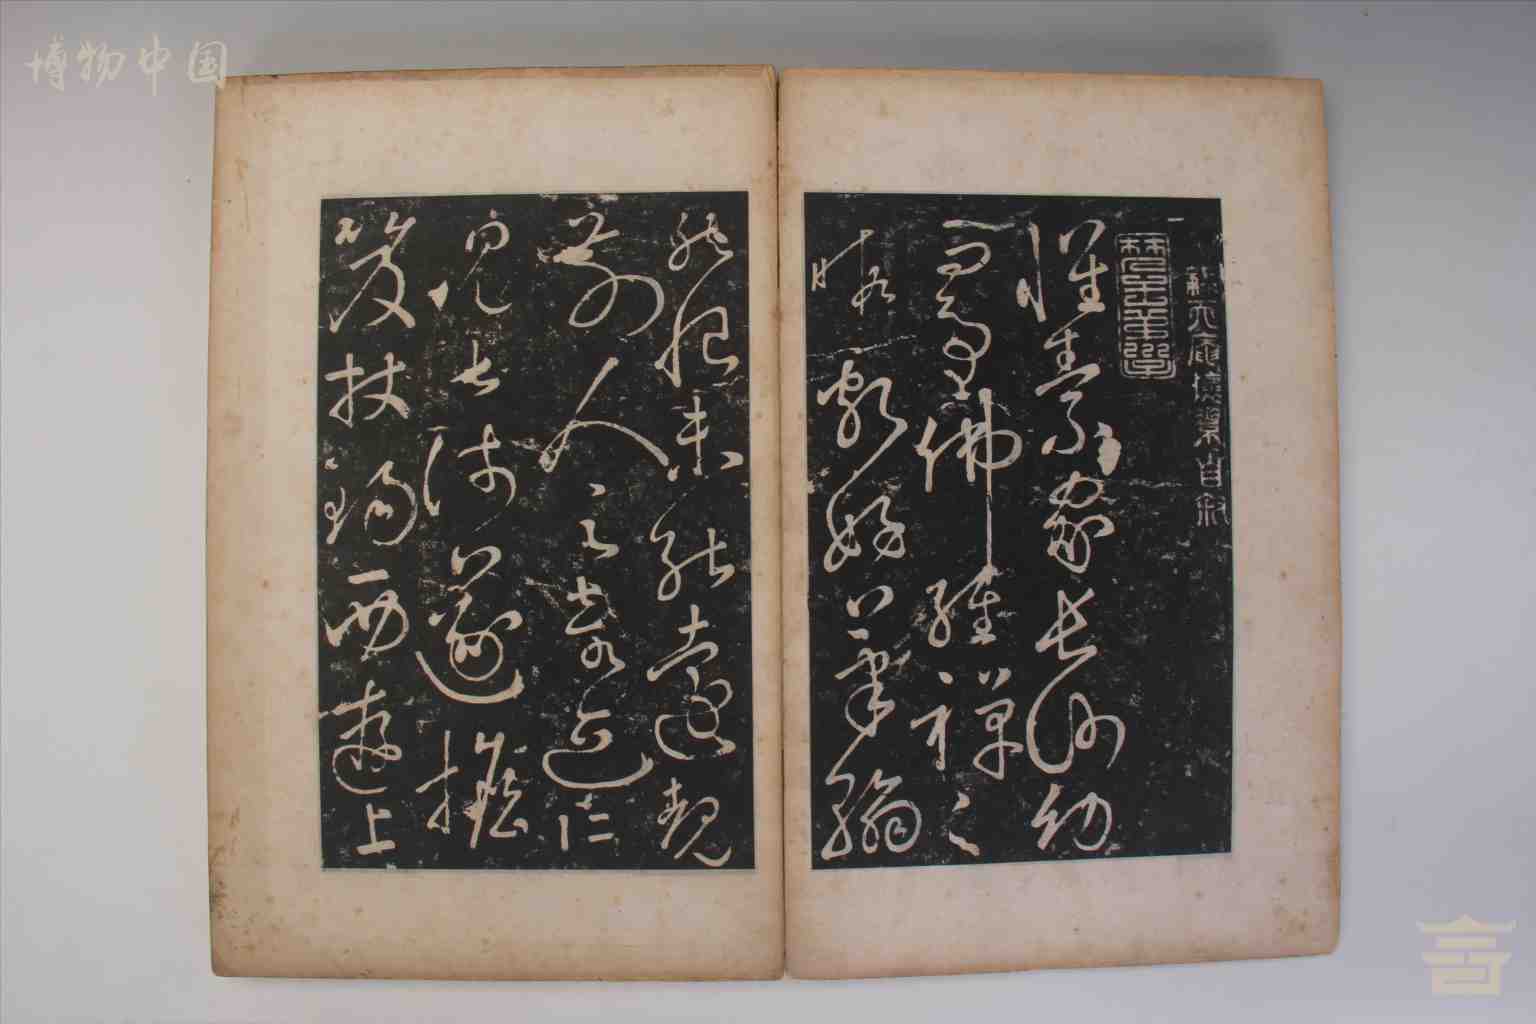 博物中国
綠天庵懷素自叙
懷素家長沙幼
而事佛經禪之
暇頗好筆翰
然恨未能遠覩
前人之奇迹所
見甚淺遂擔
笈杖錫西遊上